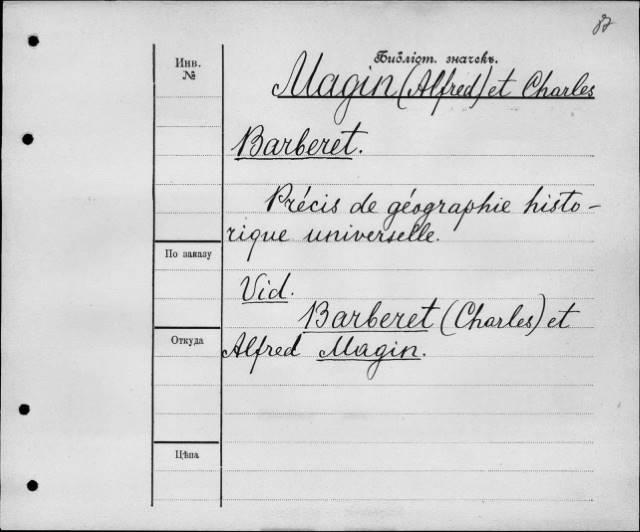 82
Инв.
№
Библіот. значекъ.
Magin (Alfred) et Charles
Barberet.
Précis de géographie histo-
rique universelle.
По заказу
Vid.
Barberet (Charles) et
Откуда
Alfred Magin.
Цѣна